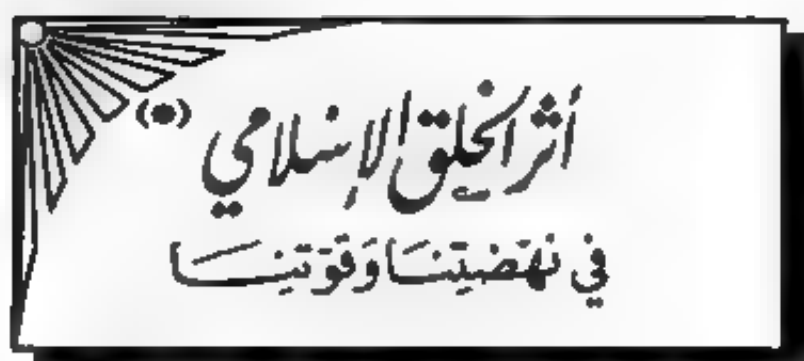 أثر الخلق الإسلامي (*)
في نهضتنا وقوتنا